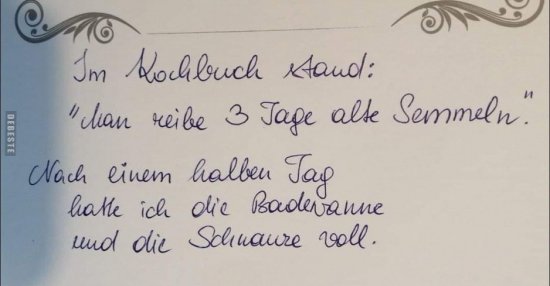 Im Kochbuch stand:
"Man reibe 3 Tage alte Semmeln."
Nach einem halben Tag
hatte ich die Badewanne
und die Schnauze voll.
DEBESTE